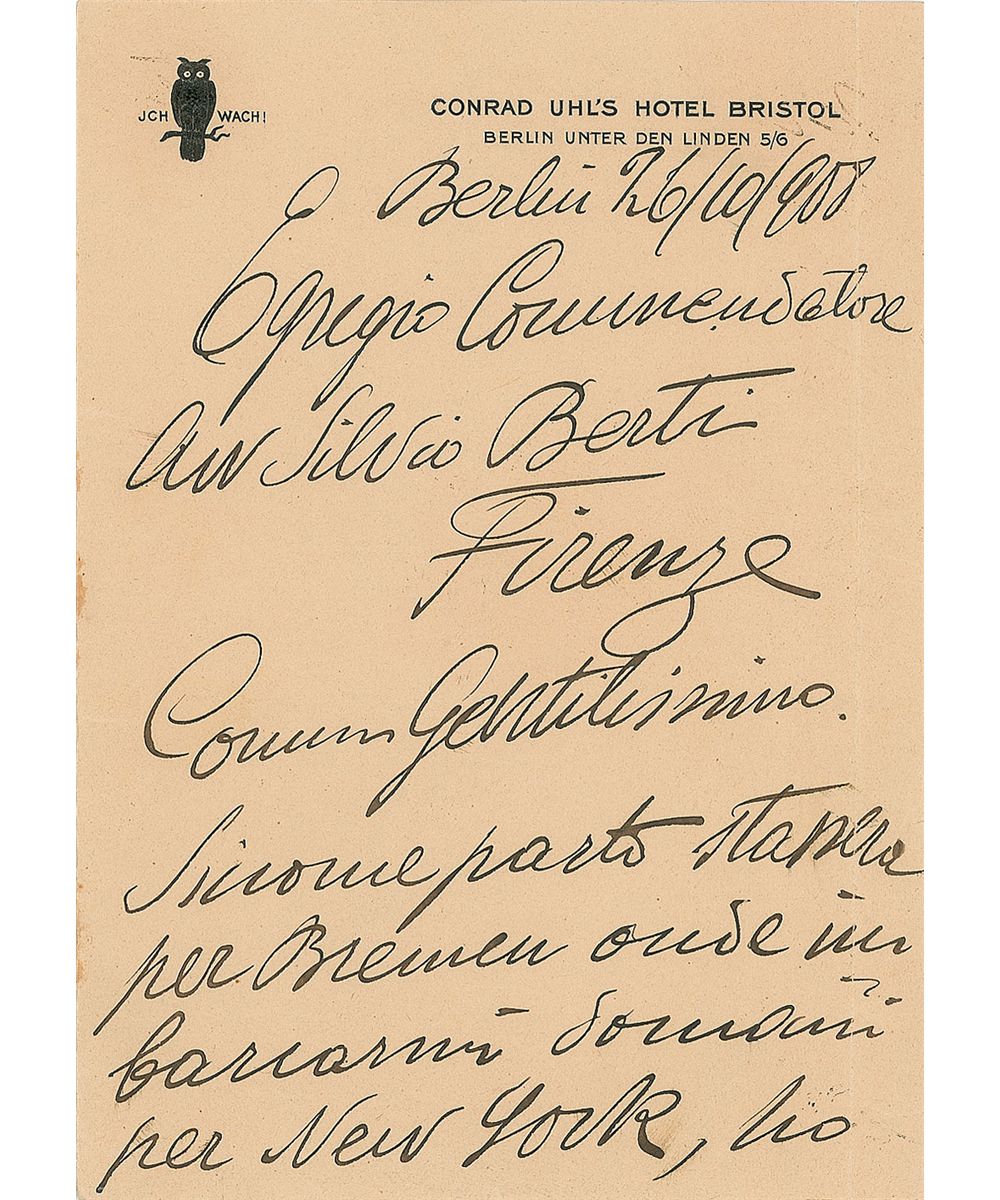 JCH WACH!
CONRAD UHL'S HOTEL BRISTOL
BERLIN UNTER DEN LINDEN 5/6
Berlin 26/10/908
Egregio Commendatore
Avv Silvio Berti
Firenze
Comm Gentilissimo.
Siccome parto stassera
per Bremen onde im
barcarmi domani
per New York, ho